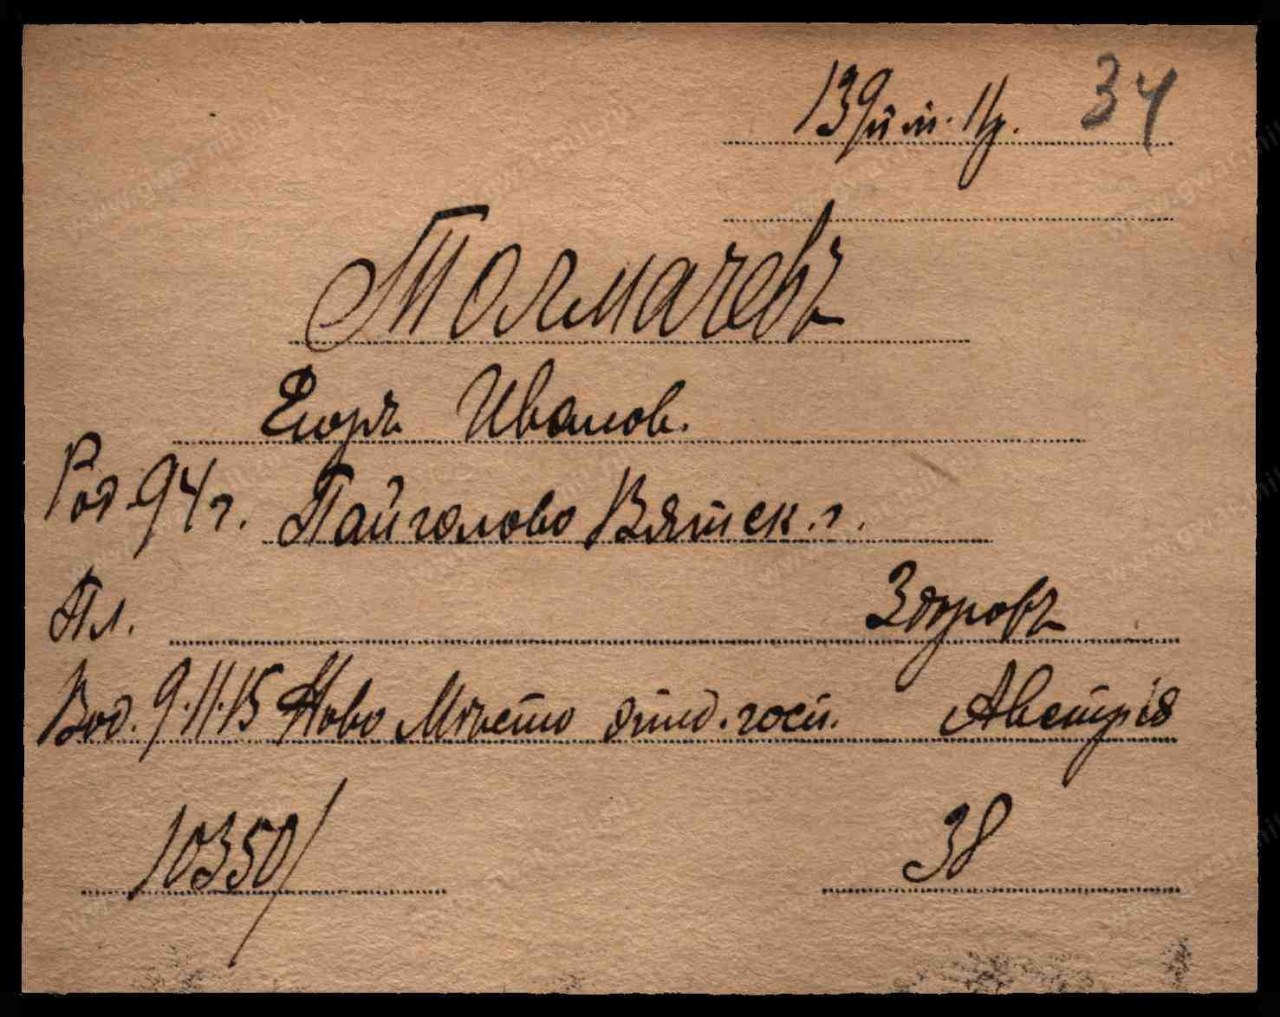 139 п.п. 11 р. 34
Толмачевъ
Егоръ Иванов.
Род. 94 г. Пайголово Вятск. г.
Пл. Здоровъ
Вод. 9.11.15 Ново Мѣсто эпид. госп. Австрія
10350/ 38